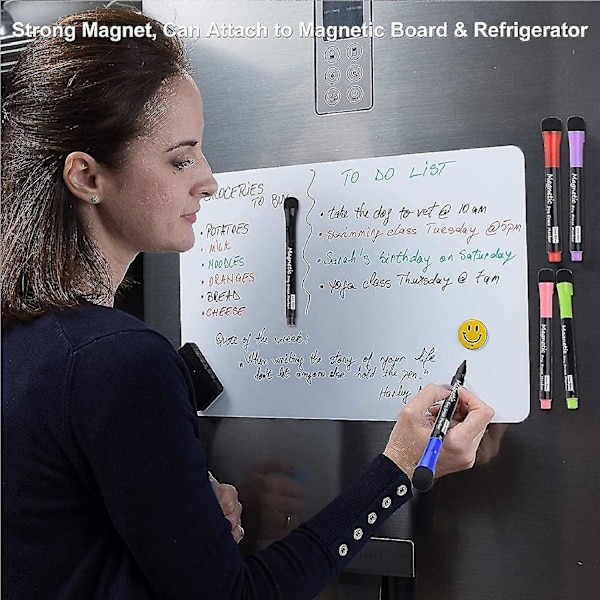 Strong Magnet, Can Attach to Magnetic Board & Refrigerator
GROCERIES
TO BUY
• POTATOES
• MILK
• NOODLES
• ORANGES
• BREAD
• CHEESE
TO DO LIST
• take the dog to vet @ 10 am
• swimming class Tuesday @ 5pm
• Sarah's birthday on Saturday
• yoga class Thursday @ 7am
Quote of the week:
"When writing the story of your life
don't let anyone else hold the pen."
Harley
Magnetic
Magnetic Dry Erase Marker
Magnetic Dry Erase Marker
Magnetic Dry Erase Marker
Magnetic Dry Erase Marker